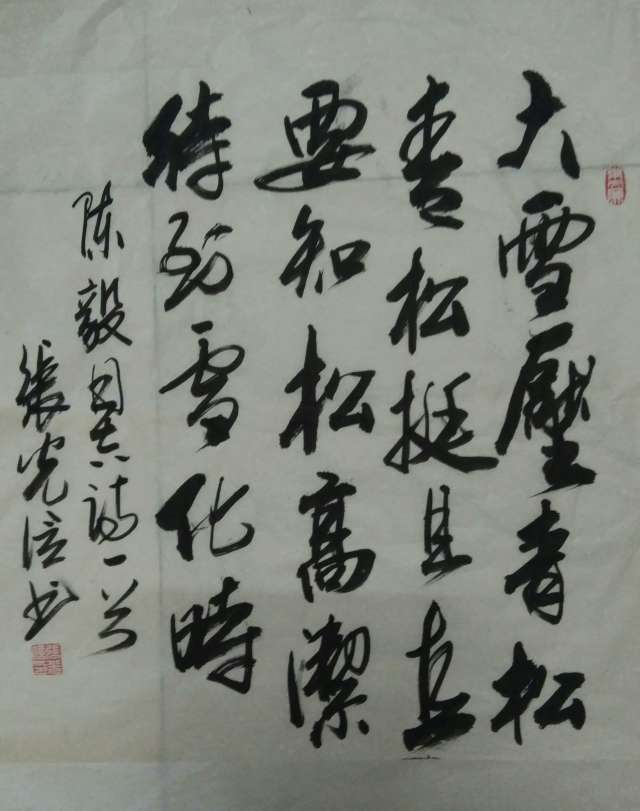 大雪壓青松
青松挺且直
要知松高潔
待到雪化時
陈毅同志詩一首
張光信书